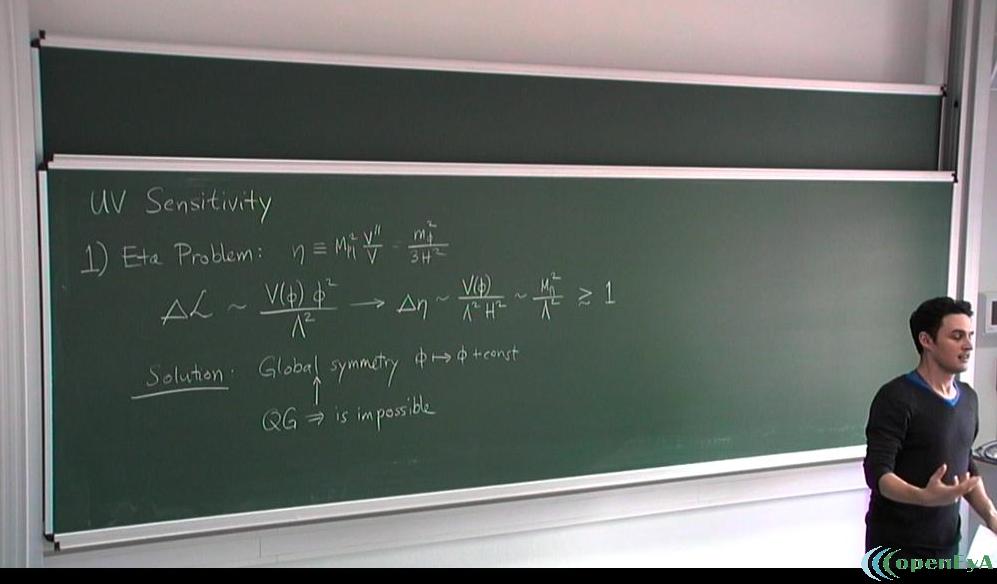 UV Sensitivity
1) Eta Problem: η ≡ M_Pl^2 V''/V = m_φ^2/3H^2
Δℒ ~ V(φ) φ^2/Λ^2 → Δη ~ V(φ)/Λ^2 H^2 ~ M_Pl^2/Λ^2 ≳ 1
Solution: Global symmetry φ ↦ φ + const
↑
QG ⇒ is impossible
openEyA